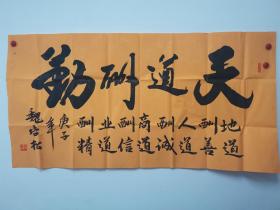 天道酬勤
地道酬善人道酬诚商道酬信业道酬精
庚子年
魏松